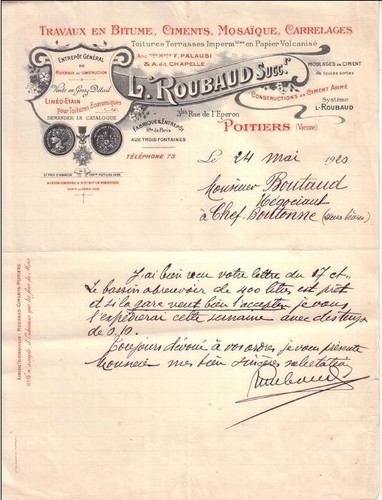 TRAVAUX EN BITUME, CIMENTS, MOSAÏQUE, CARRELAGES
Toitures Terrasses Imperm bles en Papier Volcanisé
ENTREPÔT GÉNÉRAL
DE
MATÉRIAUX DE CONSTRUCTION
Vente en Gros & Détail
LINÉO-ÉTAIN
Pour Toitures Économiques
DEMANDER LE CATALOGUE
Anc nes Mon F. PALAUSI
& A. dit CHAPELLE
L. ROUBAUD Succr
MOULAGES EN CIMENT
de toutes sortes
CONSTRUCTIONS EN CIMENT ARMÉ
Système
L. ROUBAUD
Rue de l'Éperon
POITIERS (Vienne)
FABRIQUE & ENTREPÔT
Rte de Paris
AUX TROIS FONTAINES
TÉLÉPHONE 73
Le 24 mai 1920
Monsieur Boutaud
Négociant
à Chef Boutonne (Deux Sèvres)
J'ai bien reçu votre lettre du 17 ct.
Le bassin abreuvoir de 400 litres est prêt
et si la gare veut bien l'accepter je vous
l'expédierai cette semaine avec des tuyaux
de 0.10.
Toujours dévoué à vos ordres je vous présente
Monsieur mes bien sincères salutations
Roubaud
ADRESSE TÉLÉGRAPHIQUE : ROUBAUD-CIMENTS-POITIERS